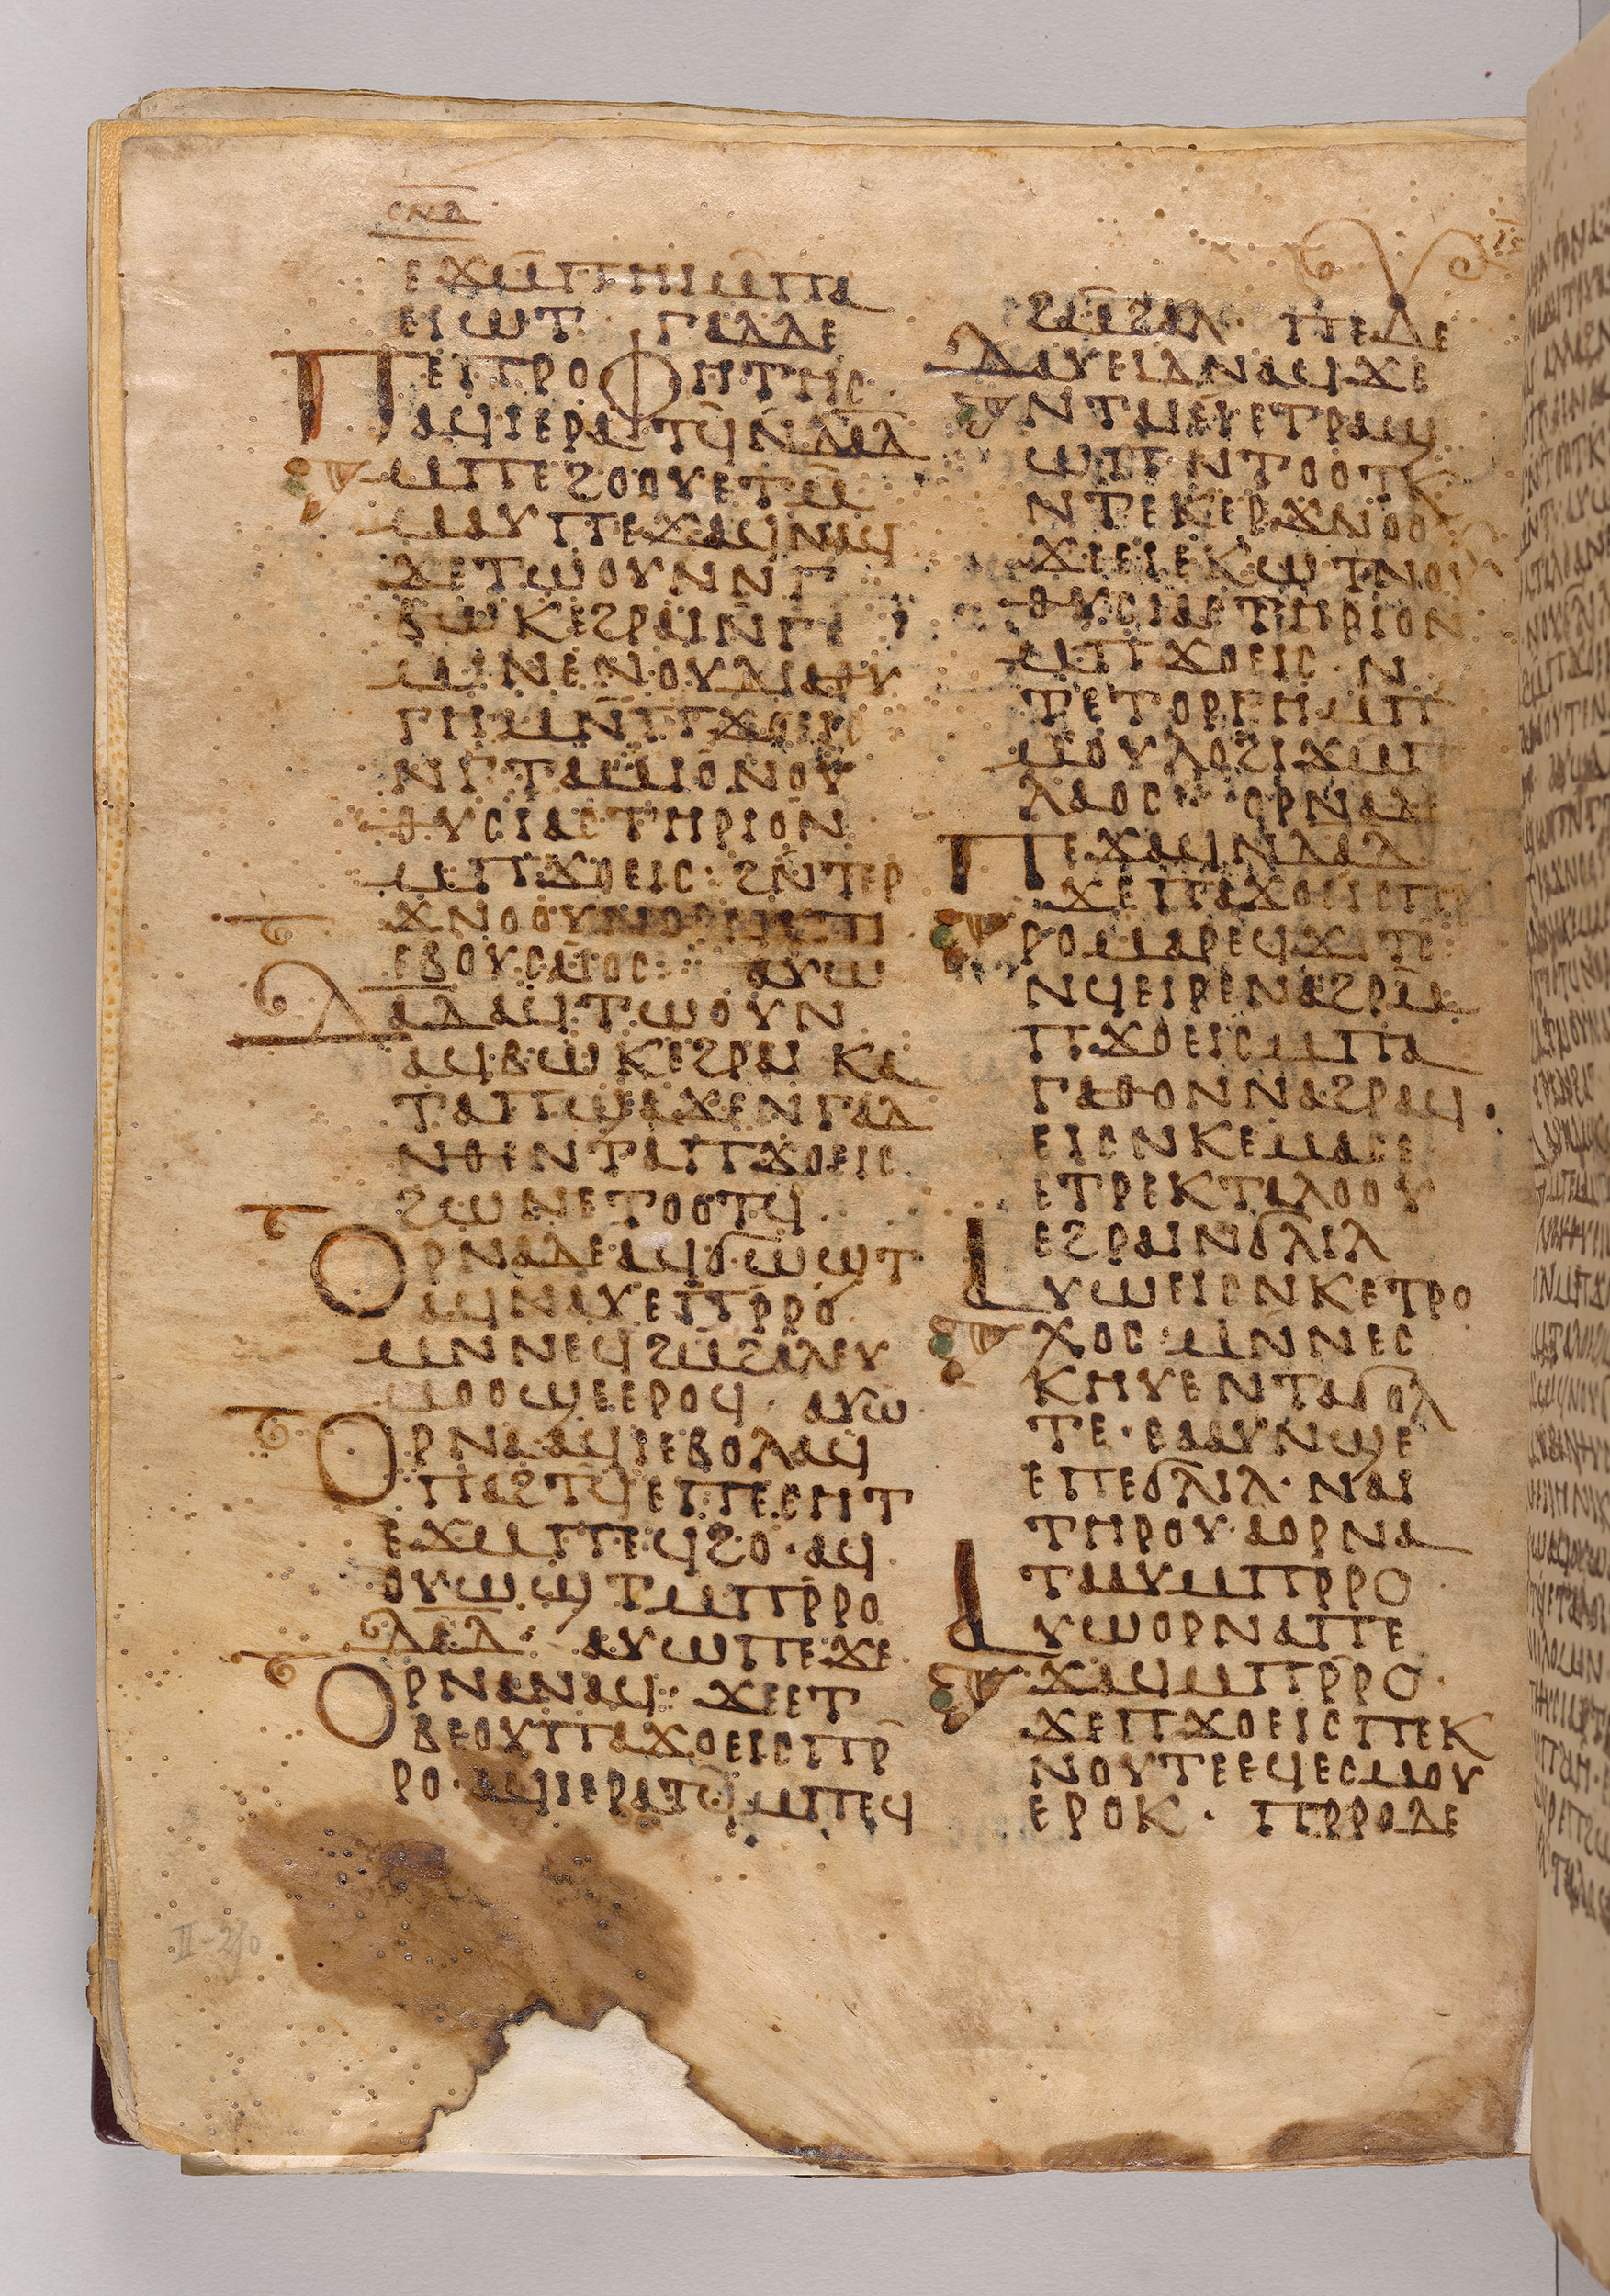 ⲥⲛⲇ
ⲉϫⲙⲡⲏⲓⲙⲡⲁ
ⲉⲓⲱⲧ · ⲅⲁⲇⲇⲉ
ⲡⲉⲡⲣⲟⲫⲏⲧⲏⲥ ·
ⲁϥⲓⲉⲣⲁⲧϥⲛ̄ⲇⲁⲇ
ⲙⲡⲉϩⲟⲟⲩⲉⲧⲙ̄
ⲙⲁⲩⲡⲉϫⲁϥⲛⲁϥ
ϫⲉⲧⲱⲟⲩⲛⲛⲅ
ⲃⲱⲕⲉϩⲣⲁⲓⲛ̄ⲅⲥ
ⲙⲓⲛⲉⲛⲟⲩⲙⲁⲟⲩ
ⲛⲅⲧⲁⲙⲓⲟⲛⲟⲩ
ⲑⲩⲥⲓⲁⲥⲧⲏⲣⲓⲟⲛ
ⲙⲡϫⲟⲉⲓⲥ · ϩⲛ̄ⲧⲉⲣ
ϫⲛⲟⲟⲩ
ⲉⲃⲟⲩⲥⲁⲓⲟⲥ : ⲁⲩⲱ
ⲇⲁⲇⲁϥⲧⲱⲟⲩⲛ
ⲁϥⲃⲱⲕⲉϩⲣⲁⲓ ⲕⲁ
ⲧⲁⲡϣⲁϫⲉⲛⲅⲁⲇ
ⲛⲑⲉⲛⲧⲁⲡϫⲟⲉⲓⲥ
ϩⲱⲛⲉⲧⲟⲟⲧϥ ·
ⲟⲣⲛⲁⲇⲉⲁϥϭⲱϣⲧ
ⲁϥⲛⲁⲩⲉⲡⲣ̄ⲣⲟ
ⲙⲛⲛⲉϥϩⲙϩⲁⲗⲉⲩ
ⲙⲟⲟϣⲉⲉⲣⲟϥ · ⲁⲩⲱ
ⲟⲣⲛⲁⲁϥⲓⲉⲃⲟⲗⲁϥ
ⲡⲁϩⲧϥⲉⲡⲉⲥⲏⲧ
ⲉϫⲙⲡⲉϥϩⲟ · ⲁϥ
ⲟⲩⲱϣⲧⲙⲡⲣ̄ⲣⲟ
ⲇⲁⲇ · ⲁⲩⲱⲡⲉϫⲉ
ⲟⲣⲛⲁⲛⲁϥ · ϫⲉⲉⲧ
ⲃⲉⲟⲩⲡⲁϫⲟⲉⲓⲥⲡⲣ̄
ⲣⲟ · ⲁϥⲓⲉⲣⲁⲧϥ̄ⲙⲡⲉϥ
ϩⲙ̄ϩⲁⲗ · ⲡⲉⲇⲉ
ⲇⲁⲩⲉⲓⲇⲛⲁϥϫⲉ
ⲛⲧⲁⲉⲓⲉⲧⲣⲁϣ
ϣⲡⲛⲧⲟⲟⲧⲕ
ⲛⲧⲉⲕⲉⲣϫⲛⲟⲟⲩ
ϫⲉⲉⲓⲉⲕⲱⲧⲛⲟⲩ
ⲑⲩⲥⲓⲁⲥⲧⲏⲣⲓⲟⲛ
ⲙⲡϫⲟⲉⲓⲥ · ⲛ
ⲧⲉⲧⲟⲣⲅⲏⲙⲡ
ⲙⲟⲩⲗⲟϩⲓϫⲙⲡ
ⲗⲁⲟⲥ · ⲟⲣⲛⲁⲇⲉ
ⲡⲉϫⲁϥⲛⲇⲁⲇ
ϫⲉⲡⲁϫⲟⲉⲓⲥⲡⲣ
ⲣⲟⲙⲁⲣⲉϥϫⲓⲧⲥ
ⲛϥⲉⲓⲣⲉⲛⲁϩⲣⲙ̄
ⲡϫⲟⲉⲓⲥⲙⲡⲁ
ⲅⲁⲑⲟⲛⲛⲁϩⲣⲁϥ ·
ⲉⲓⲥⲛⲕⲉⲙⲁⲥⲉ
ⲉⲧⲣⲉⲕⲧⲁⲗⲟⲟⲩ
ⲉϩⲣⲁⲓⲛϭⲗⲓⲗ
ⲁⲩⲱⲉⲓⲥⲛⲕⲉⲧⲣⲟ
ⲭⲟⲥ · ⲙⲛⲛⲉⲥ
ⲕⲏⲩⲉⲛⲧⲁϭⲟⲗ
ⲧⲉ · ⲉⲁⲁⲩⲛϣⲉ
ⲉⲡⲉϭⲗⲓⲗ · ⲛⲁⲓ
ⲧⲏⲣⲟⲩ · ⲁⲟⲣⲛⲁ
ⲧⲁⲁⲩⲙⲡⲣⲣⲟ ·
ⲁⲩⲱⲟⲣⲛⲁⲡⲉ
ϫⲁϥⲙⲡⲣ̄ⲣⲟ ·
ϫⲉⲡϫⲟⲉⲓⲥⲡⲉⲕ
ⲛⲟⲩⲧⲉⲉϥⲉⲥⲙⲟⲩ
ⲉⲣⲟⲕ · ⲡⲣⲣⲟⲇⲉ